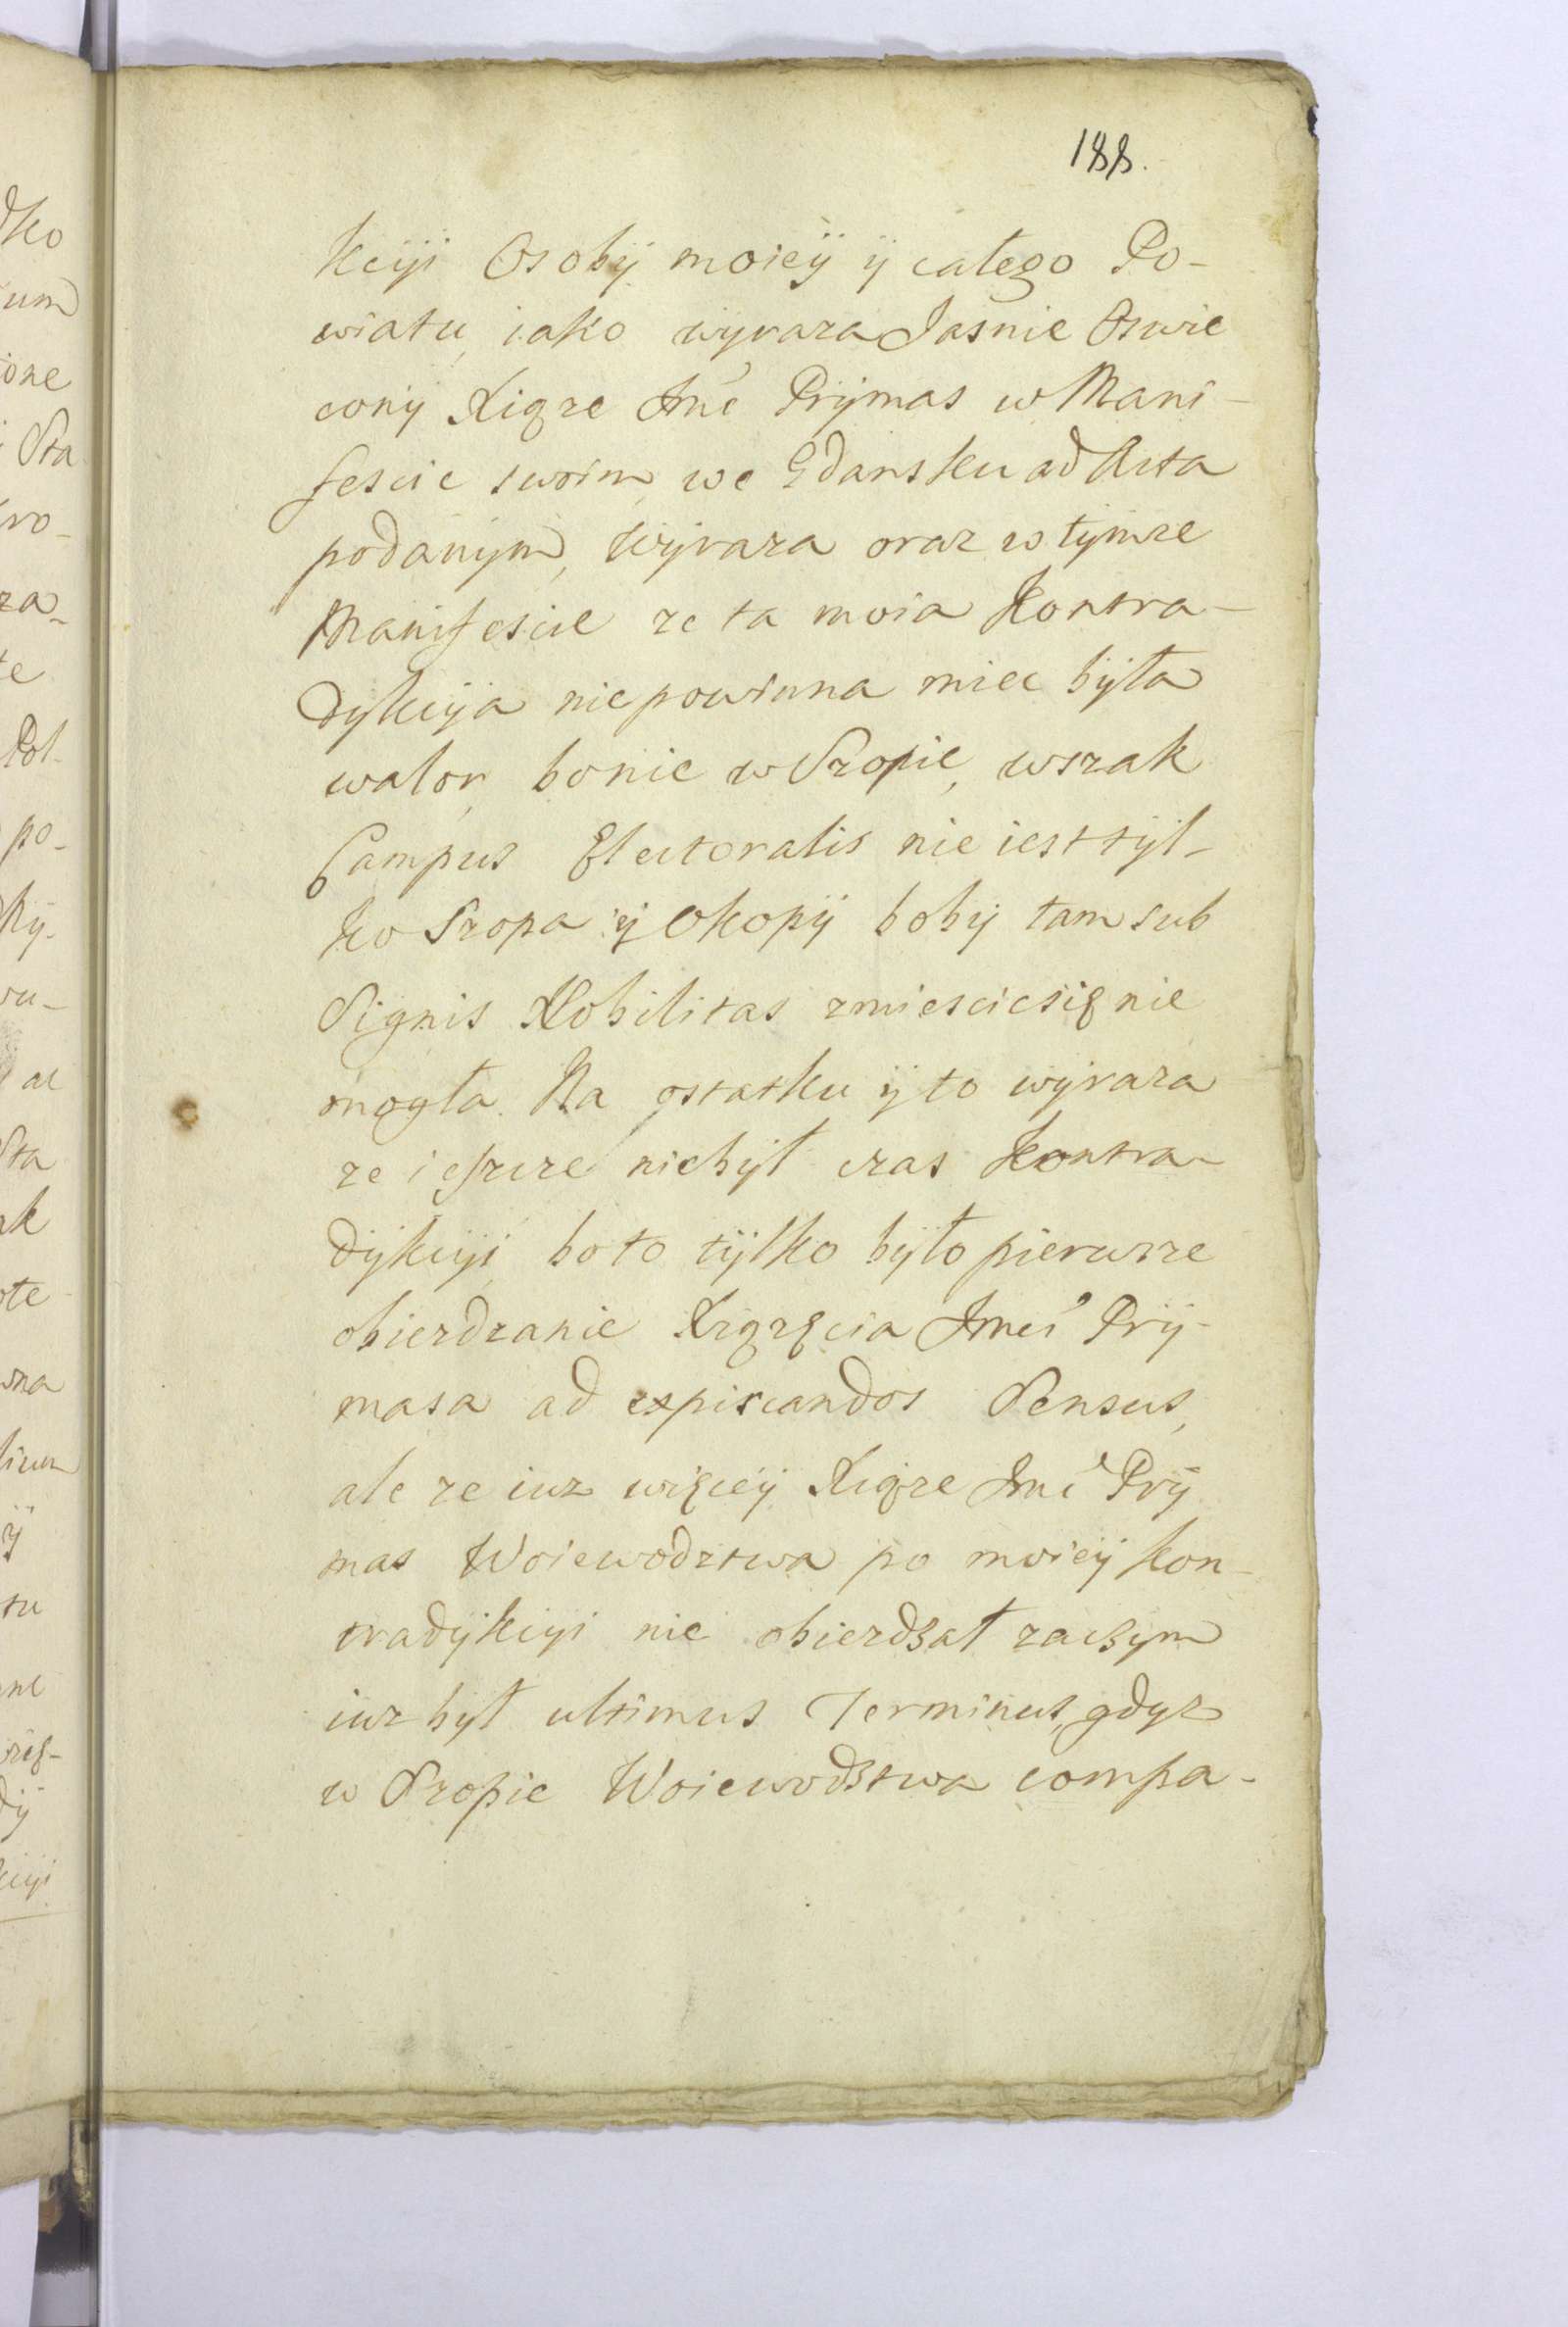 188.
kcÿi Osobÿ moieÿ ÿ całego Po-
wiatu, iako wyraza Jasnie Oswie
conÿ Xiąze Jmć Prÿmas w Mani-
fescie swoim we Gdansku ad Acta
podanÿm, wÿraza oraz w tÿmze
Manifescie ze ta moia Kontra-
dÿkcÿa niepowinna miec bÿła
walor, bo nie w Szopie, wszak
Campus Electoralis nie iest tÿl-
ko Szopa ÿ Okopÿ bobÿ tam sub
Signis Nobilitas zmiescic się nie
mogła. Na ostatku ÿ to wÿraza
ze ieszcze niebÿł czas Kontra-
dÿkcÿi, bo to tÿlko bÿło pierwsze
obiezdzanie Xiązęcia Jmci Prÿ-
masa ad expiscandos Sensus,
ale ze iuz więceÿ Xiąze Jmć Prÿ
mas Woiewodztwa po moieÿ kon-
tradÿkcÿi nie obiezdzał zaczym
iuz bÿł ultimus Terminus, gdyz
w Szopie Woiewodztwa compa-